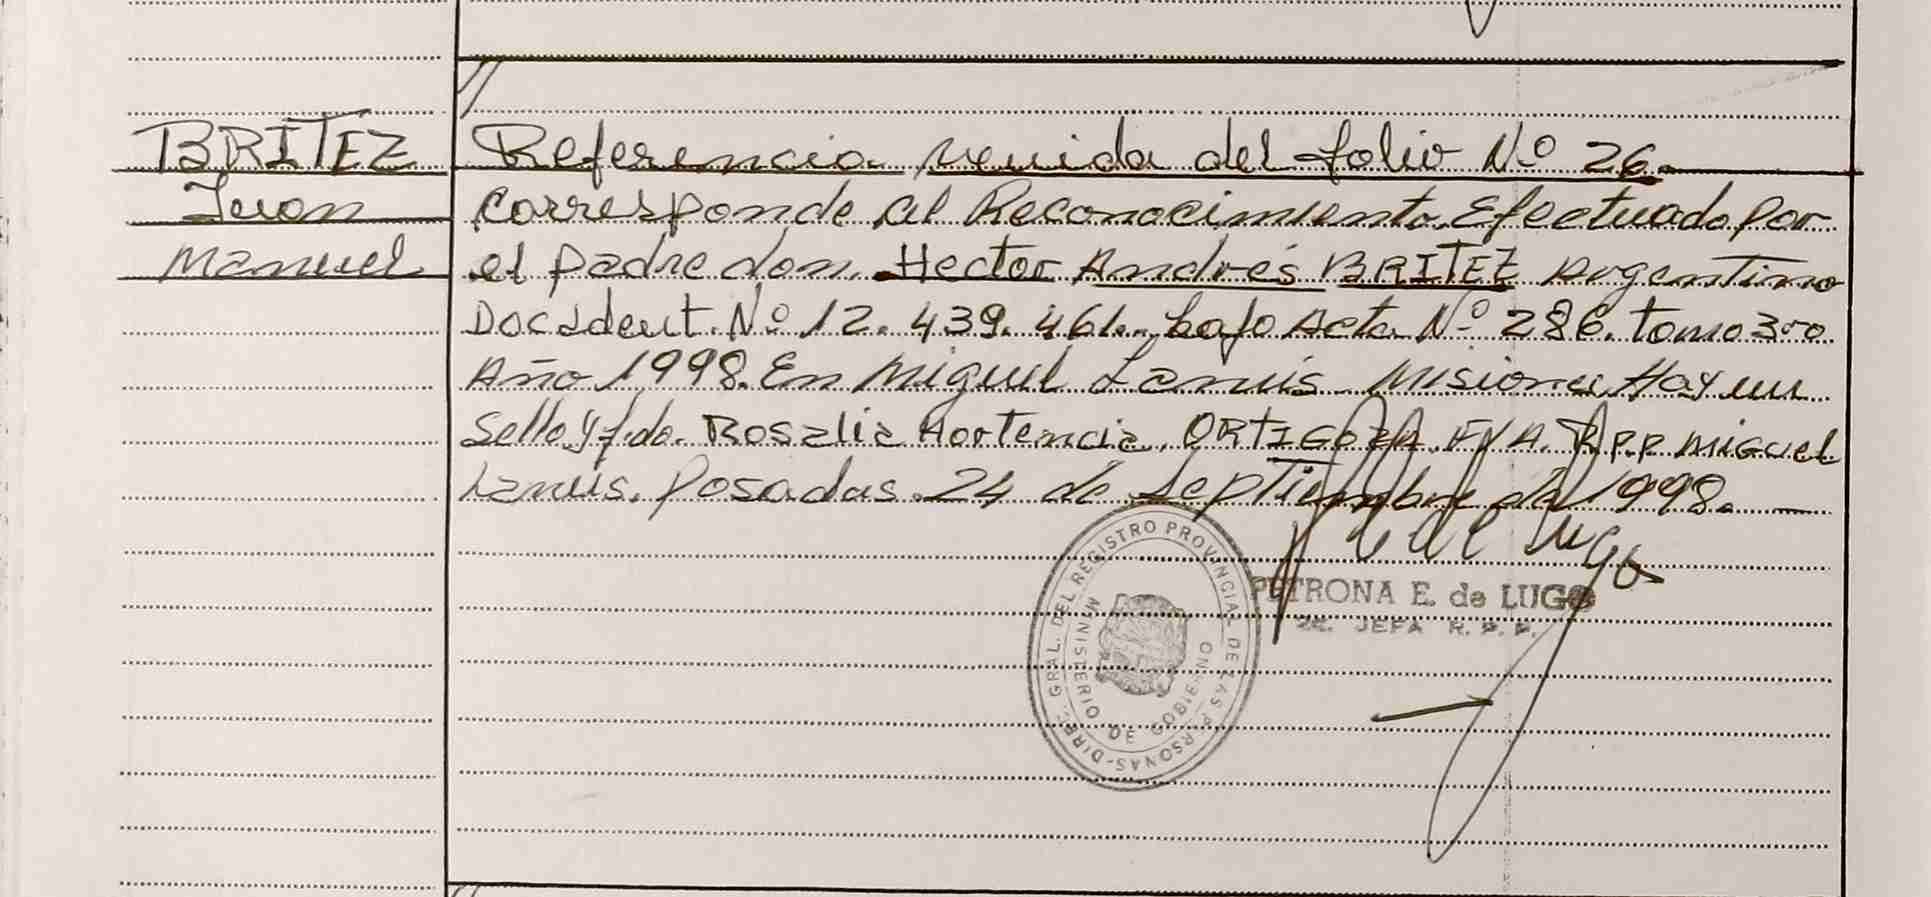 BRITEZ
Juan
Manuel
Referencia venida del folio Nº 26.
Corresponde al Reconocimiento Efectuado por
el padre don Hector Andrés BRITEZ Argentino
Doc Ident. Nº 12.439.461.. bajo Acta Nº 286. tomo 3ro
Año 1998. En Miguel Lanús Misiones Hay un
Sello y fdo. Rosalia Hortencia ORTIGOZA. R.P.P. Miguel
Lanús. Posadas 24 de Septiembre de 1998.
de Lugo
PETRONA E. de LUGO
JEFA R.P.P.
DIREC. GRAL. DEL REGISTRO PROVINCIAL DE LAS PERSONAS-
MINISTERIO DE GOBIERNO